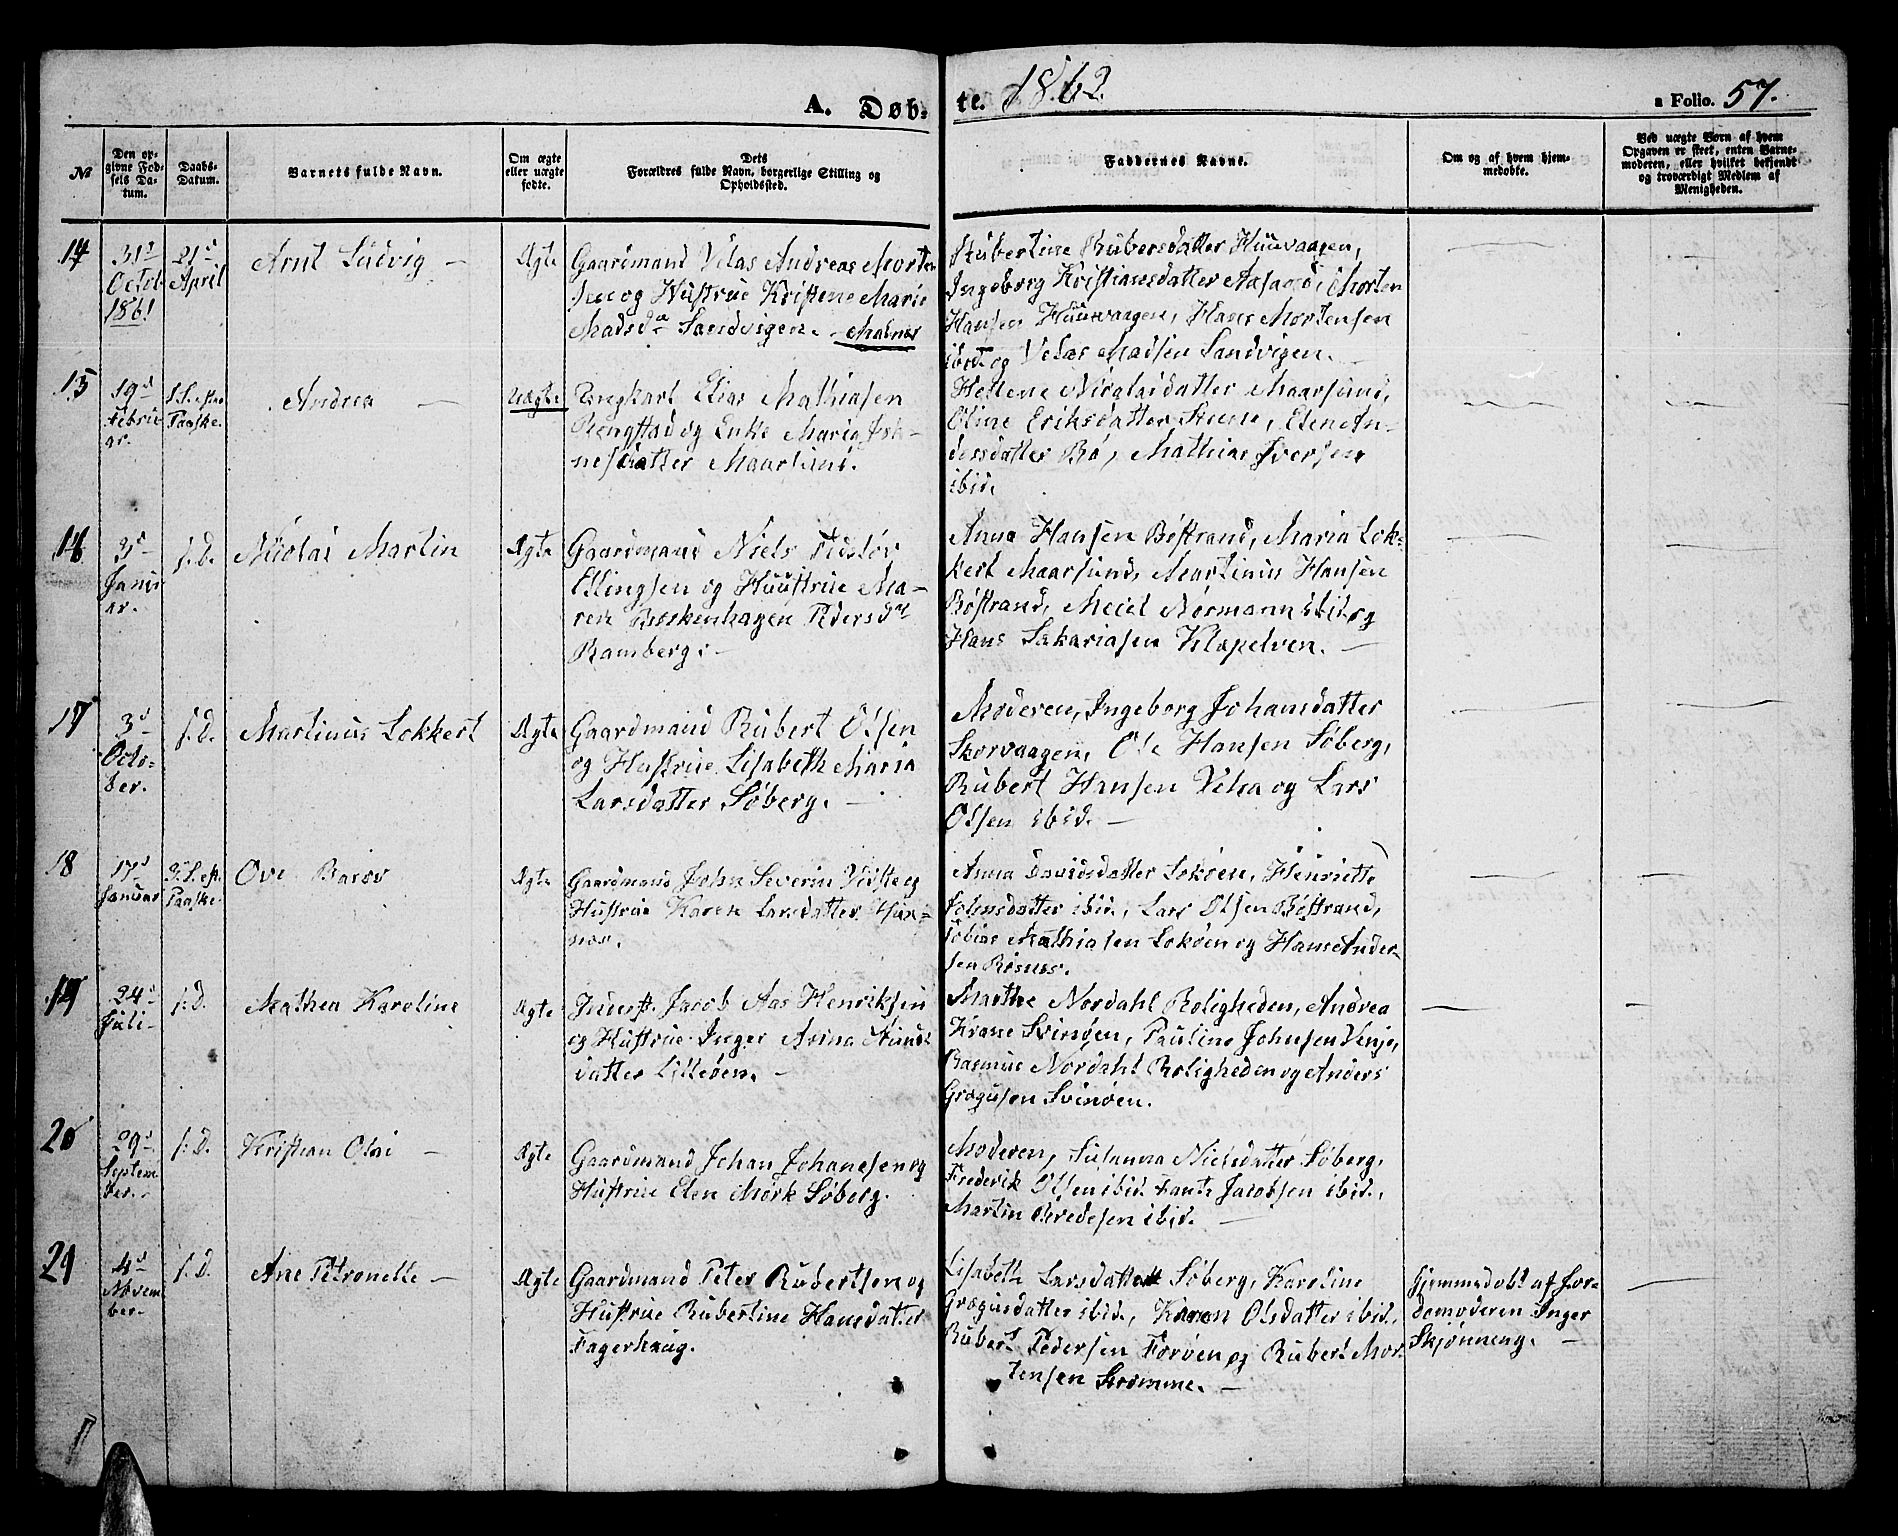 A. Døb-
te. 1862.
a Folio. 57.
№
Den op-
givne Fød-
sels Da-
tum.
Daabs-
Datum.
Barnets fulde Navn.
Om ægte
eller uægte
fødte.
Dets
Forældres fulde Navn, borgerlige Stilling og
Opholdssted.
Faddernes Navne.
Om og af hvem hjem-
medøbte.
Ved uægte Børn af hvem
Opgaven er skeet, enten Barne-
moderen, eller hvilket bekjendt
og troværdigt Medlem af
Menigheden.
14
31d
Octob
1861
21d
April
Arnt Ludvig —
Ægte
Gaardmand Velas Andreas Morten
sen og Hustrue Kristene Marie
Madsda Sandvigen. Malnes
Rubertine Rubersdatter Huuvaagen,
Ingeborg Kristiansdatter Aasand, Morten
Hansen Huuvaagen, Hans Mortensen
ibid. og Velas Madsen Sandvigen.
15
19d
Febru-
ar.
1.S. efter
Paaske.
Andrea —
Uægte
Ungkarl Elias Mathiasen
Ringstad og Enke Maria
datter Maarsund.
Hellene Nicolaidatter Maarsund,
Eline Eriksdatter Steene, Elen An-
dersdatter Bø, Mathias Iversen
ibid.
16
3d
Janu-
ar.
s.D.
Nicolai Martin
Ægte
Gaardmand Niels
Ellingsen og Huustrue Ma-
ren Pedersdat
Ramberg. —
Anna Hansen Bøstrand, Maria Lok-
kert Maarsund, Martinus Hansen
Bøstrand, Meier Normann ibid. og
Hans Sakariasen Klapelven. —
17
3d
Octo-
ber.
s.D.
Martinus Lokkert
Ægte
Gaardmand Rubert Olsen
og Hustrue Lisabeth Maria
Larsdatter Søberg. —
Moderen, Ingeborg Johansdatter
Skorvaagen, Ole Hansen Søberg,
Rubert Hansen Vika og Lars
Olsen ibid. —
18
17d
Januar
2.S. eft.
Paaske.
Ove
Ægte
Gaardmand John Severin og
Hustrue Karen Larsdatter
Anna Davidsdatter Lokøen, Henriette
Johnsdatter ibid., Lars Olsen Bøstrand,
Tobias Mathiasen Lokøen og Hans Ander-
sen Risnes.
19
24d
Juli
s.D.
Mathea Karoline
Ægte
Inderst. Jacob Aas Henriksen
og Hustrue Inger Anna
datter Lilleøen. —
Marthe Nordahl Roligheden, Andrea
Krane Svinøen, Pauline Johnsen Vinje,
Rasmus Nordahl Roligheden og Anders
Grøgusen Svinøen.
20
29d
Septem
ber.
s.D.
Kristian Olai —
Ægte
Gaardmand Johan Johanesen og
Hustrue Elen Mørk Søberg.
Moderen, Susanna Nielsdatter Søberg,
Frederik Olsen ibid. Jacobsen ibid.,
Martin Bredesen ibid. —
21
4d
Novem
ber.
s.D.
Ane Petronelle —
Ægte
Gaardmand Peter Rubertsen og
Hustrue Rubertine Hansdatter
Fagerhaug.
Lisabeth Larsdatter Søberg, Karoline
Grøgusdatter ibid., Karen Olsdatter ibid.,
Rubert Pedersen Forøen og Rubert Mor-
tensen Strømme. —
Hjemmedøbt af Jor-
demoderen Inger
Skjønneng. —